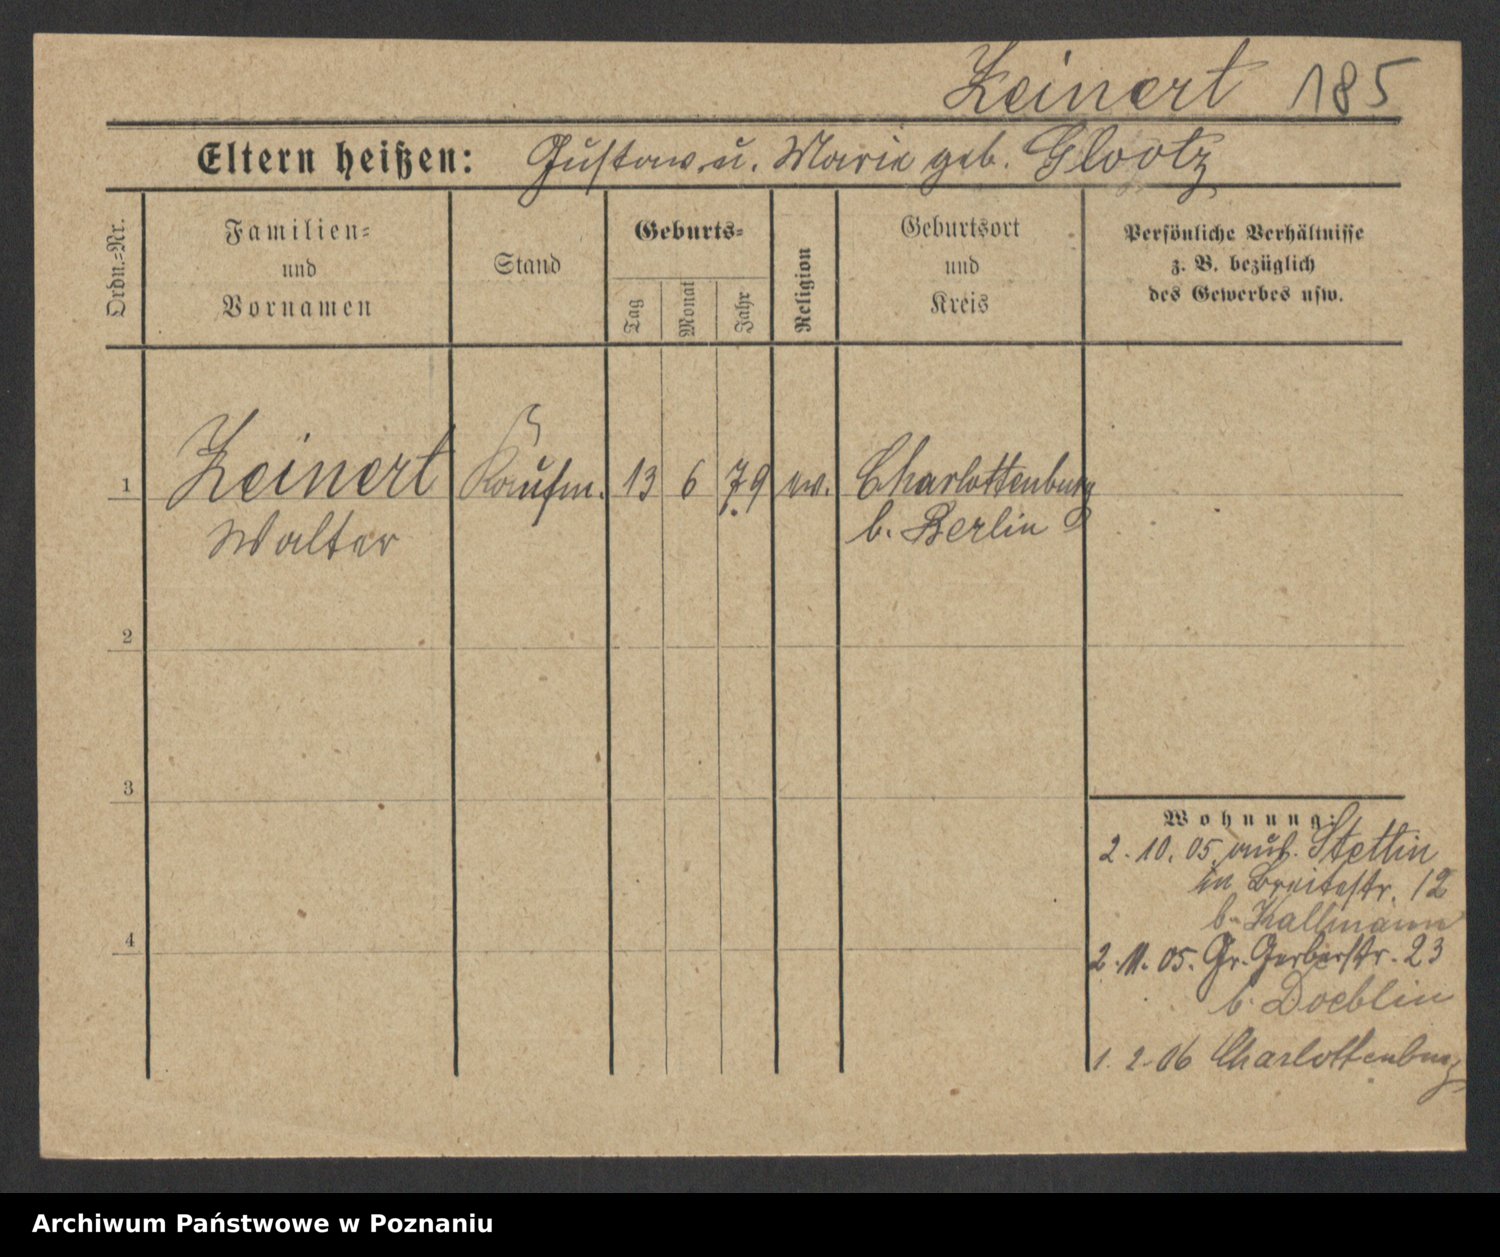 Zeinert 185
Eltern heißen: Gustav u. Marie geb. Glootz
Ordn.-Nr.
Familien-
und
Vornamen
Stand
Geburts-
Tag
Monat
Jahr
Religion
Geburtsort
und
Kreis
Persönliche Verhältnisse
z. B. bezüglich
des Gewerbes usw.
1 Zeinert Kaufm. 13 6 79 ev. Charlottenburg
Walter b. Berlin
2
3
4
Wohnung:
2. 10. 05. aus. Stettin
in Breitestr. 12
b. Kallmann
2. 11. 05. Gr. Gerberstr. 23
b. Doeblin
1. 2. 06 Charlottenburg
Archiwum Państwowe w Poznaniu